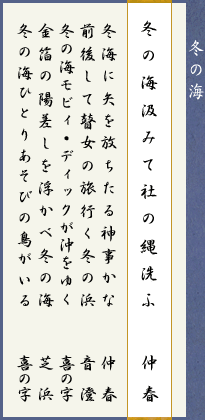 冬の海
冬の海汲みて社の縄洗ふ　仲春
冬海に矢を放ちたる神事かな　仲春
前後して瞽女の旅行く冬の浜　音澄
冬の海モビィ・ディックが沖をゆく　喜の字
金箔の陽差しを浮かべ冬の海　芝浜
冬の海ひとりあそびの鳥がいる　喜の字